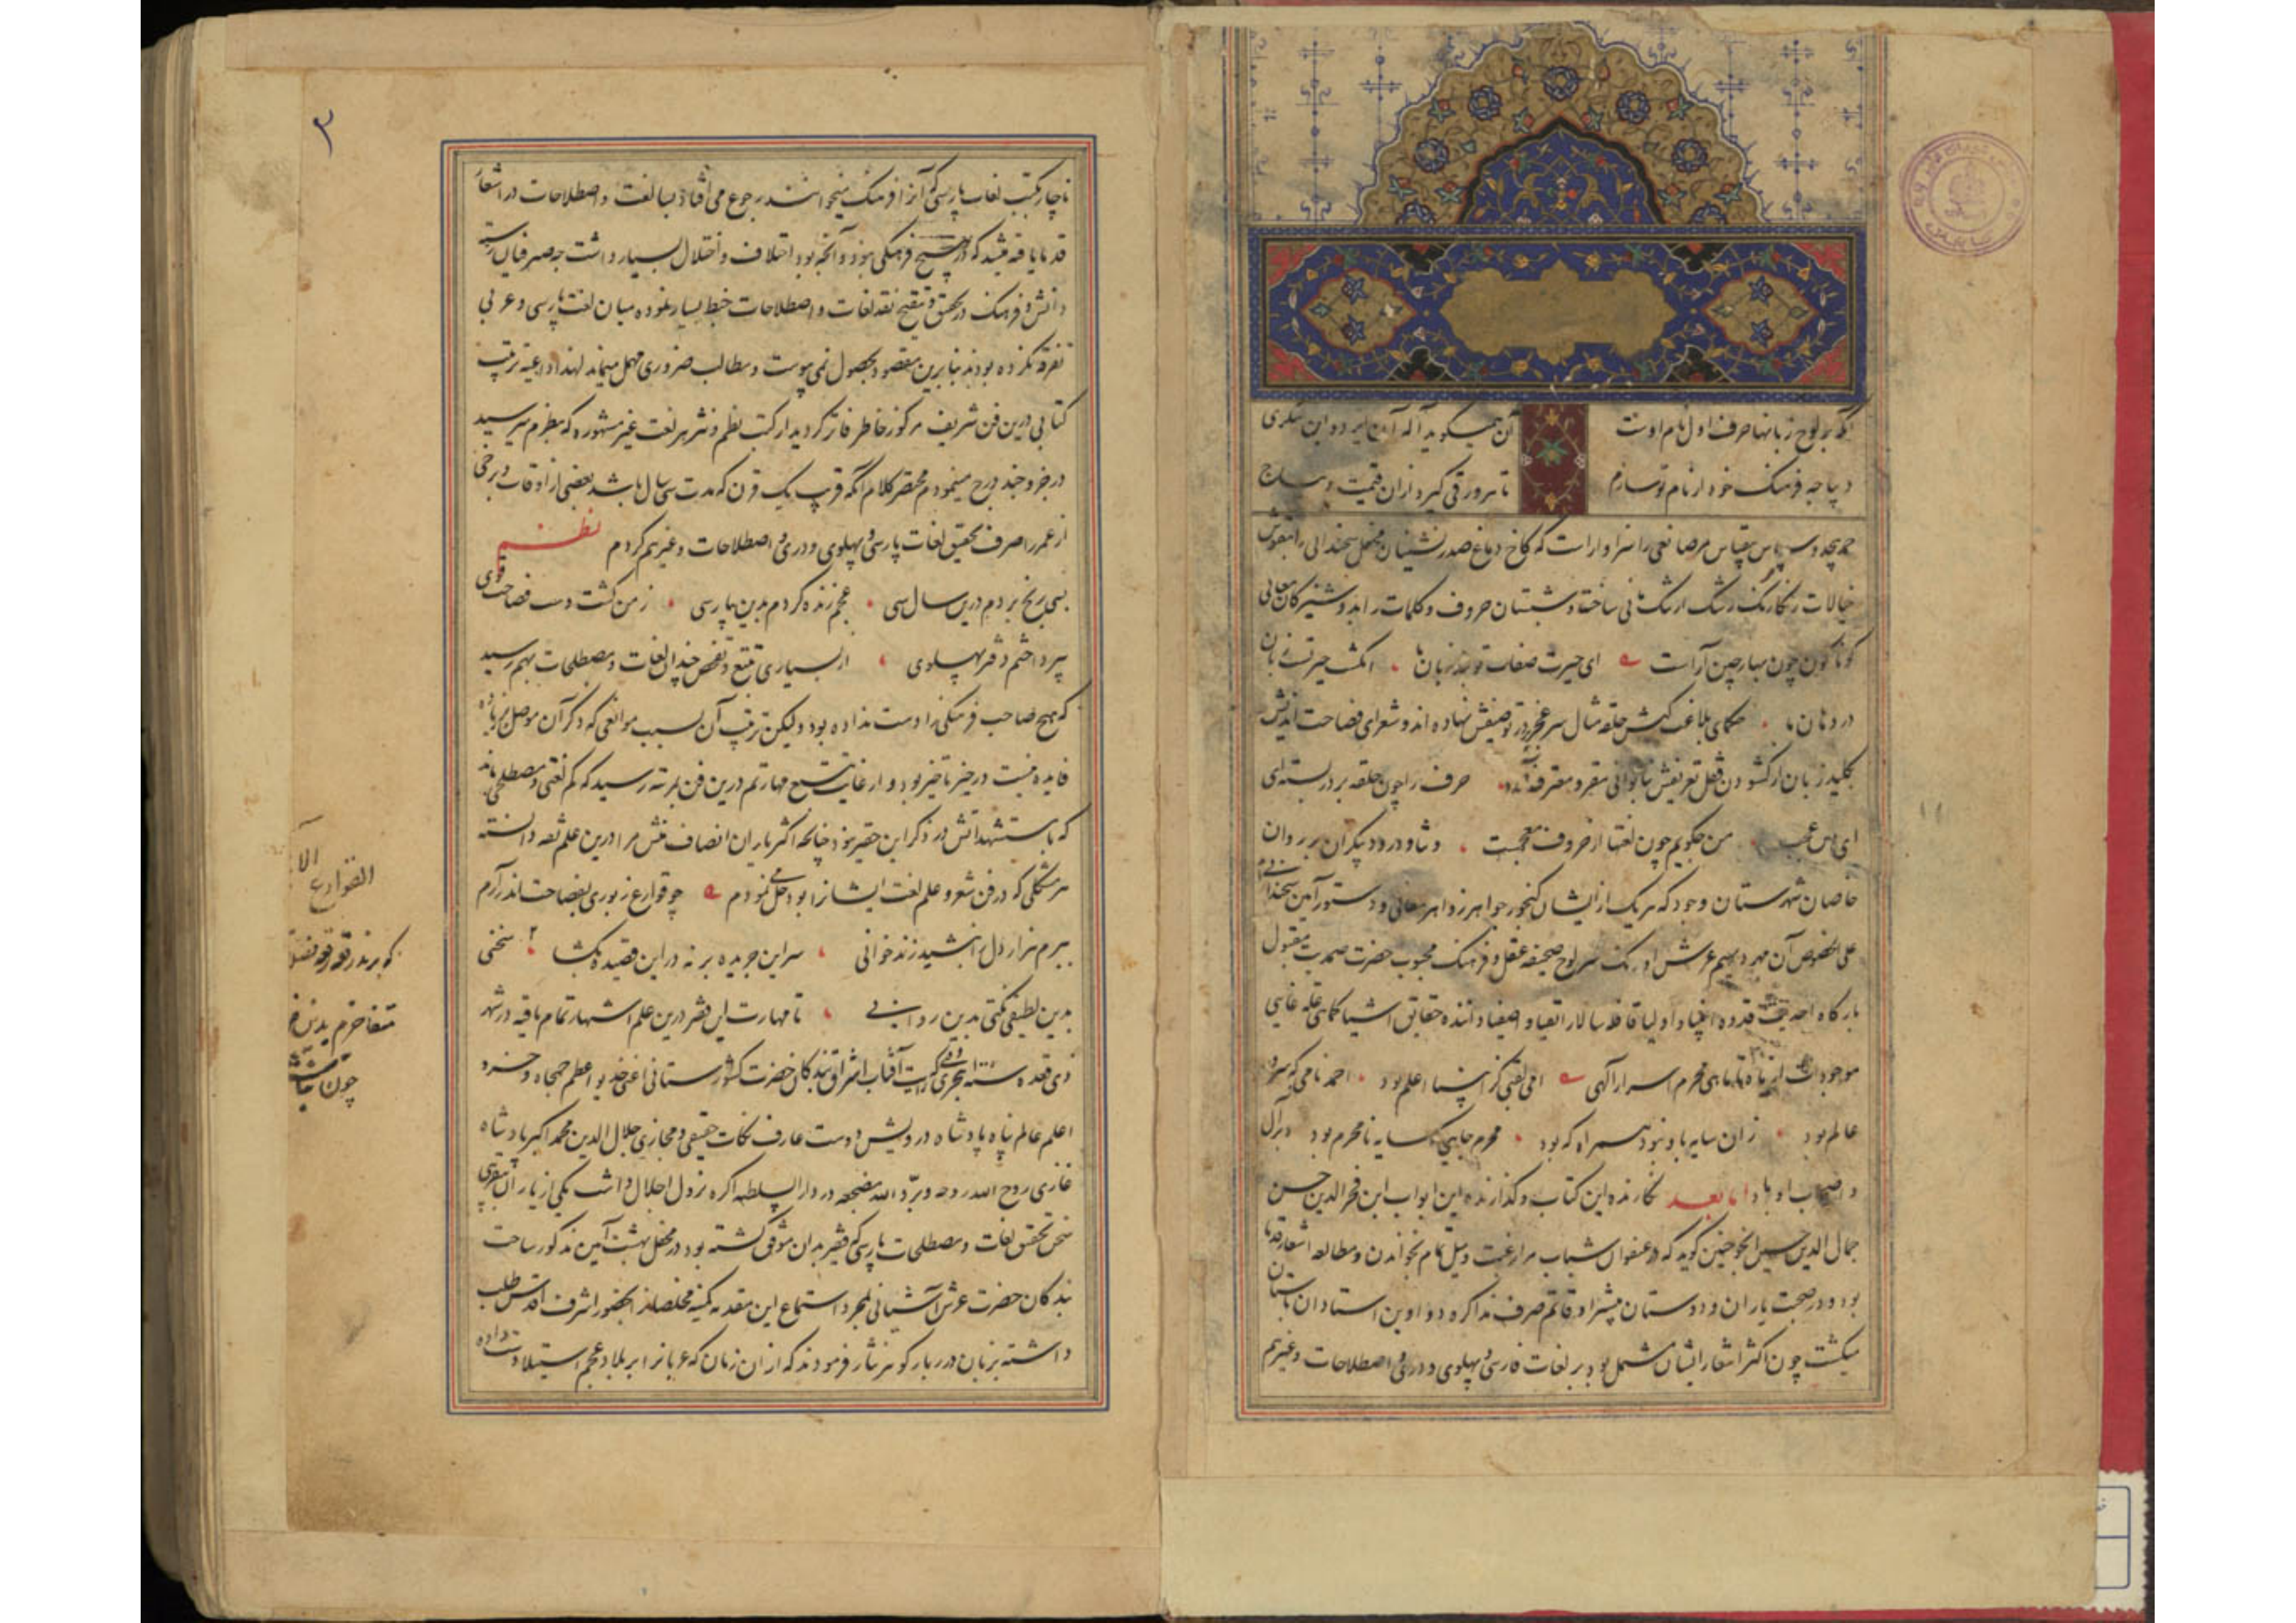 آنکه بر لوح زبانها حرف اول نام اوست
آن همیگوید آله آن ایزد و این تنکری
دیباچه فرهنک خود از نام تو سازم
تا هر ورقی کیرد ازان قیمت دیباج
حمد بیحد و سپاس بیقیاس مر صانعی را سزاوار است که کاخ دماغ صدرنشینان محفل سخندانی را بنقوش
خیالات رنکارنک رشک ارتنک مانی ساخته و شبستان حروف و کلمات را بدوشیزکان معانی
کوناکون چون بهار چین آراست ای حیرت صفات تو بند زبان ما انکشت حیرتست زبان
در دهان ما حکمای بلاغت کیش حلقه مثال سر عجز بر در توصیفش نهاده اند و شعرای فصاحت اندیش
بکلید زبان از کشودن قفل تعریفش بناتوانی مقر و معترف شده حرف را چون حلقه بر در بسته‌ای
ای بس عجب من چکویم چون لغتها از حروف معجمست و ثنا و درود بیکران بر روان
خاصان شهرستان وجود که هر یک از ایشان کنجور جواهر زواهر معانی و دستور آیین سخندانی
علی الخصوص آن مهر دیهیم عرش اورنک سر لوح صحیفه عقل و فرهنک محبوب حضرت صمدیت مقبول
بارکاه احدیت قدوه انبیا و اولیا قافله سالار اتقیا و اصفیا داننده حقایق اشیا کماهی علت غایی
موجودات از ماه تا ماهی محرم اسرار آلهی امی لقبی کز انبیا اعلم بود احمد نامی که سرور
عالم بود زان سایه باو نبود همراه که بود محرم جاییکه سایه نامحرم بود و بر آل
و اصحاب او باد اما بعد نکارنده این کتاب و کذارنده این ابواب ابن فخر الدین حسن
جمال الدین حسین انجو چنین کوید که در عنفوان شباب مرا رغبت و میل تمام بخواندن و مطالعه اشعار قدما
بود و در صحبت یاران و دوستان بیشتر اوقاتم صرف مذاکره دواوین استادان باستان
میکشت چون اکثر اشعار ایشان مشتمل بود بر لغات فارسی و پهلوی و دری و اصطلاحات و غیرهم
۳
ناچار بکتب لغات پارسی که آنرا فرهنک میخوانند رجوع می افتاد بسا لغت و اصطلاحات در اشعار
قدما یافته میشد که در هیچ فرهنکی نبود و آنچه بود اختلاف و اختلال بسیار داشت چه صرفیان رسته
دانش و فرهنک در تحقیق و تنقیح نقد لغات و اصطلاحات خبط بسیار نموده میان لغت پارسی و عربی
تفرقه نکرده بودند بنابرین مقصود بحصول نمی پیوست و مطالب ضروری مهمل میماند لهذا داعیه ترتیب
کتابی درین فن شریف مرکوز خاطر فاتر کردید از کتب نظم و نثر هر لغت غیر مشهوره که بنظرم میرسید
در جزوی چند درج مینمودم مختصر کلام آنکه قریب یک قرن که مدت سی سال باشد بعضی از اوقات و برخی
از عمر را صرف تحقیق لغات پارسی و پهلوی و دری و اصطلاحات و غیرهم کردم نظم
بسی رنج بردم درین سال سی عجم زنده کردم بدین پارسی ز من کشت دست فصاحت قوی
پرداختم دفتر پهلوی از بسیاری تتبع و تفحص چندان لغات و مصطلحات بهم رسید
که هیچ صاحب فرهنکی را دست نداده بود ولیکن ترتیب آن بسبب موانعی که ذکر آن موصل بزیاده
فایده نیست در حیز تاخیر بود و از غایت تتبع مهارتم درین فن بمرتبه رسید که کم لغتی و مصطلحی ماند
که با استشهاداتش در ذکر این حقیر نبود چنانچه اکثر یاران انصاف منش مرا درین علم ثقه دانسته
هر مشکلی که در فن شعر و علم لغت ایشانرا بود حل می نمودم چو قوارع زبوری بفصاحت اندر آرم
ببرم هزار دل از نشید زندخوانی سر این جریده بر نه در این قصیده بکشا سخنی
بدین لطیفی نکتی بدین روانی تا مهارت این فقیر درین علم اشتهار تمام یافته در شهر
ذی قعده سنه ۱۰۰۰ هجری که رایت آفتاب اشراق بندکان حضرت کشورستانی اعنی خدیو اعظم جمجاه و خسرو
اعلم عالم پناه پادشاه درویش دوست عارف نکات حقیقی و مجازی جلال الدین محمد اکبر پادشاه
غازی روح الله روحه و برد الله مضجعه در دار السلطنه اکره نزول اجلال داشت یکی از یاران بتقریبی
سخن تحقیق لغات و مصطلحات پارسی که فقیر بدان موفق کشته بود در محفل بهشت آیین مذکور ساخت
بندکان حضرت عرش آشیانی بمجرد استماع این مقدمه کمینه مخلصان را بحضور اشرف اقدس طلب
داشته بزبان درربار کوهر نثار فرمودند که از آن زمان که عربانرا بر بلاد عجم استیلا دست داده
القوارع
متفاخرم بدین
چون